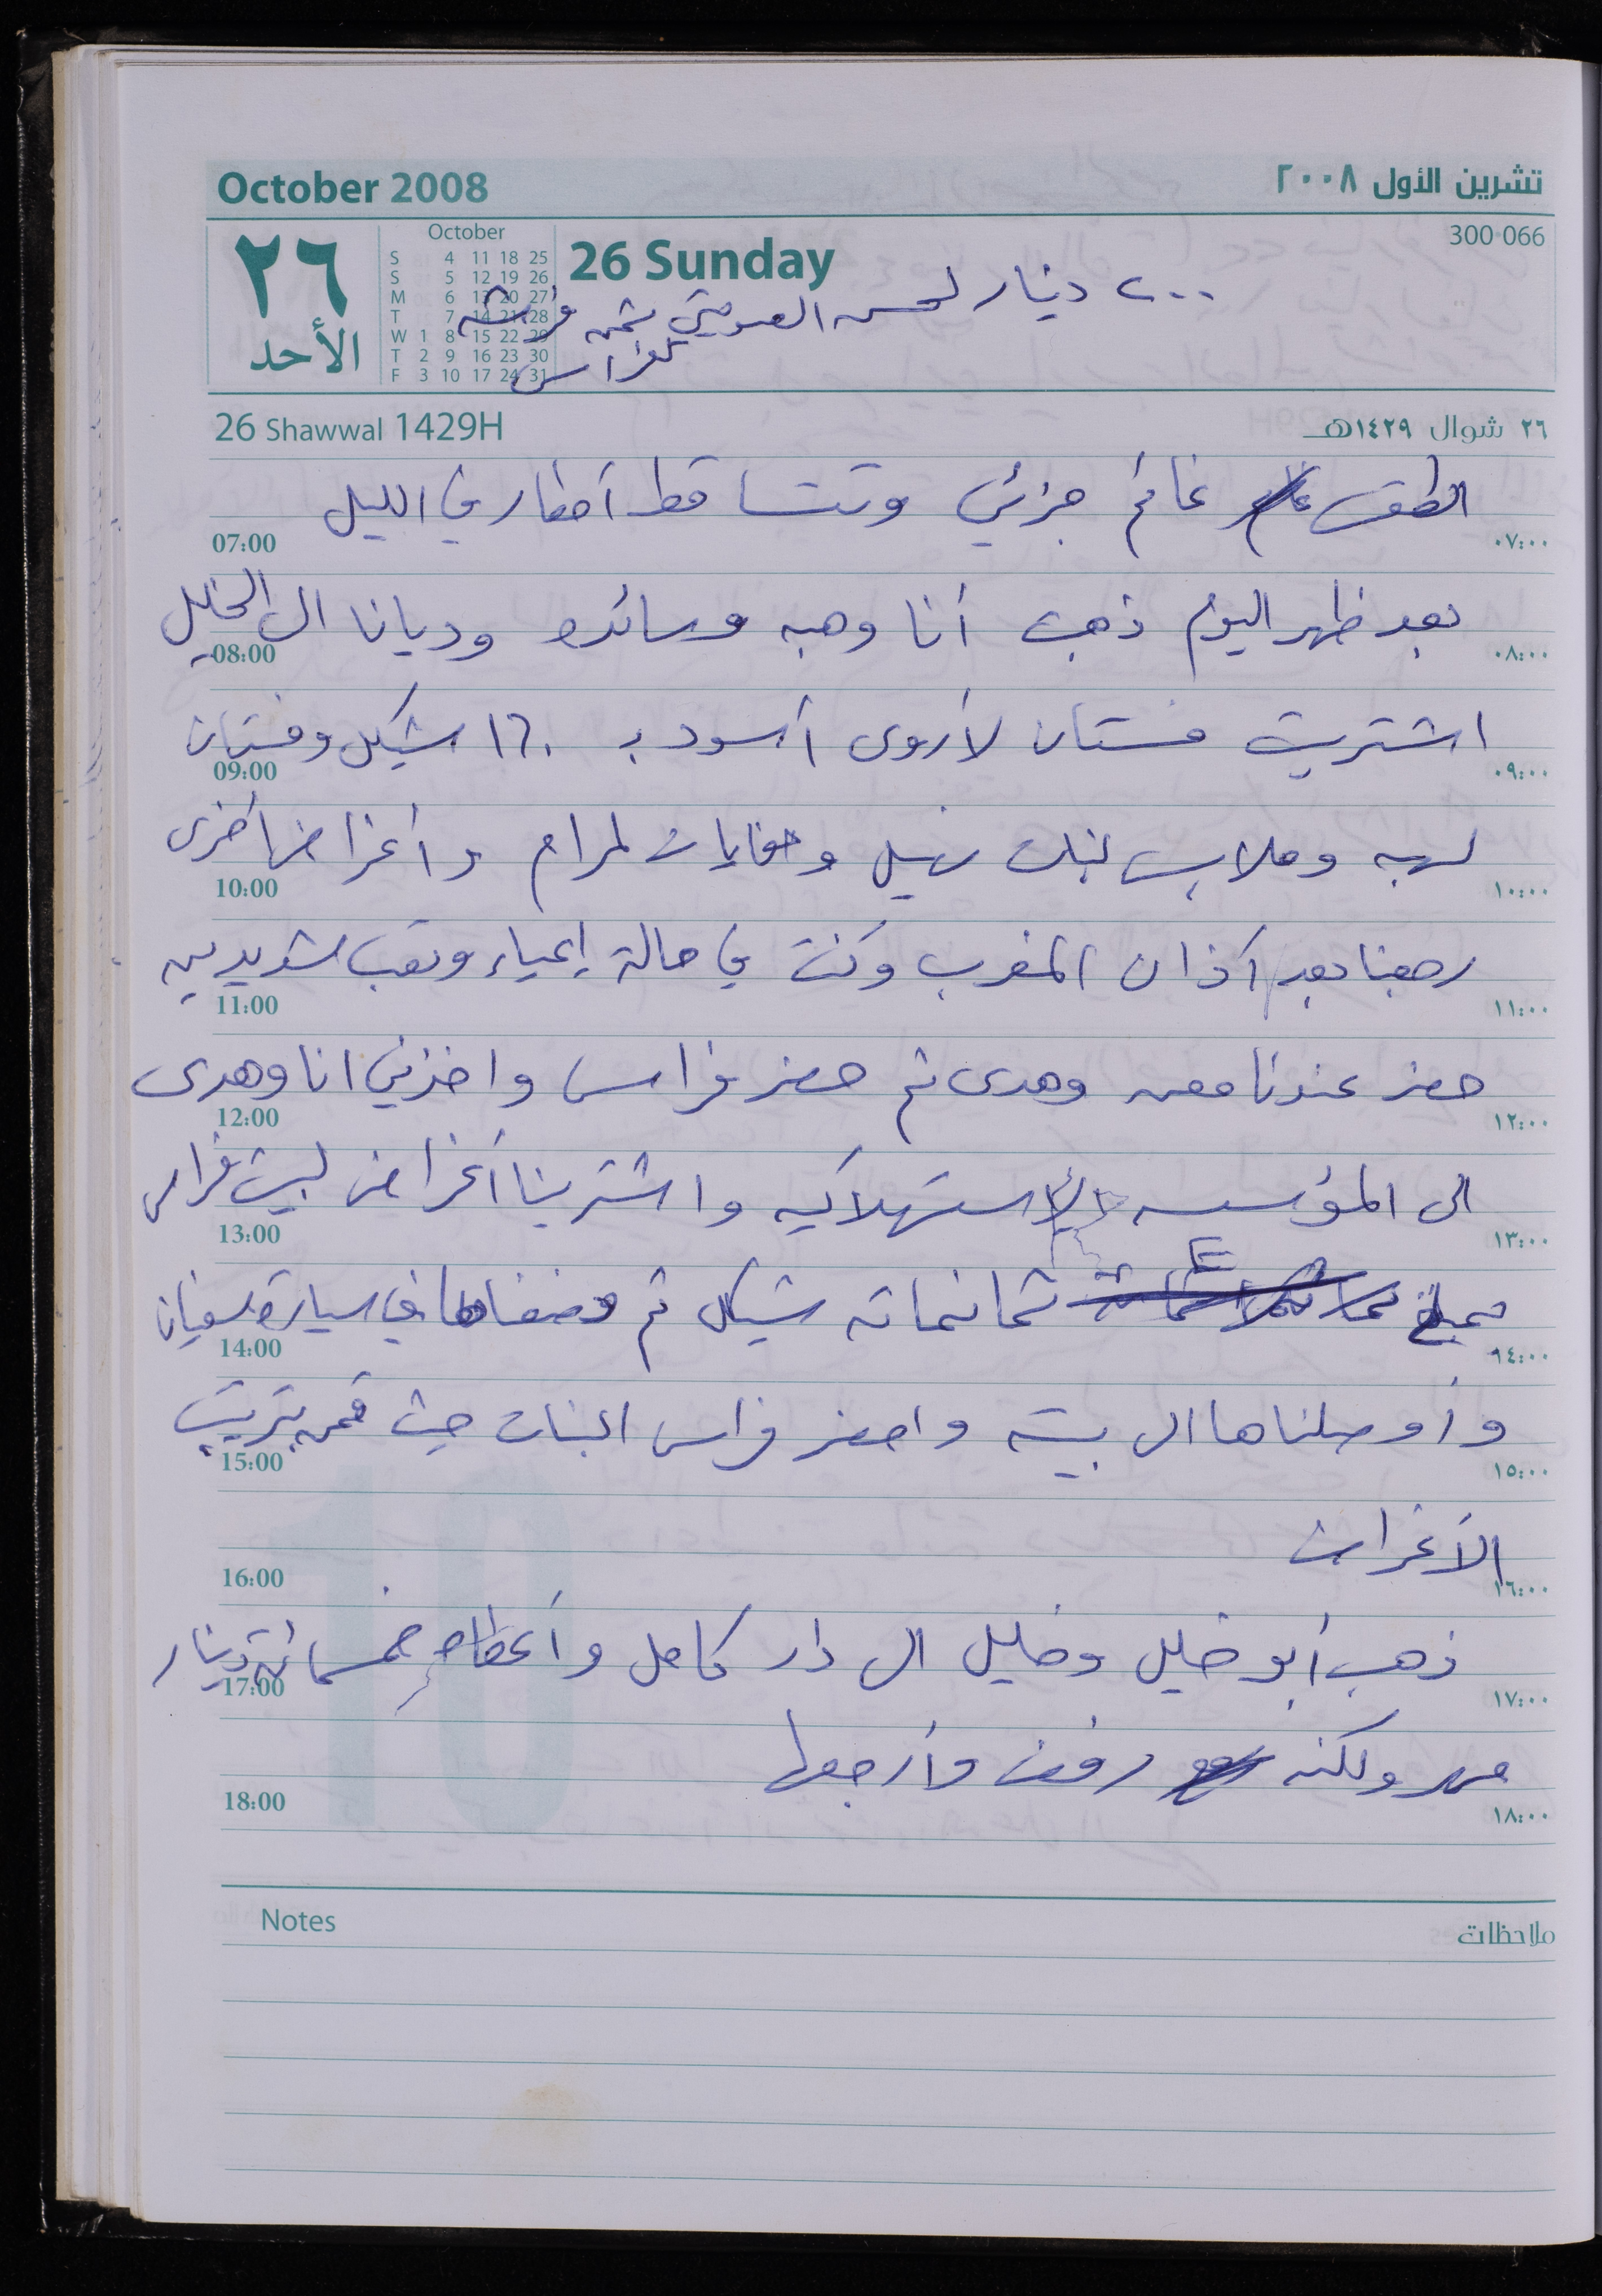 October 2008
تشرين الأول ٢٠٠٨
٢٦
الأحد
October
S 4 11 18 25
S 5 12 19 26
M 6 13 20 27
T 7 14 21 28
W 1 8 15 22 29
T 2 9 16 23 30
F 3 10 17 24 31
26 Sunday
300 066
٢٠٠ دينار لحسن العويوي ثمن فرشه
لفراس
26 Shawwal 1429H
٢٦ شوال ١٤٢٩هـ
الطقس غائم جزئي وتتساقط أمطار في الليل
07:00 ٠٧:٠٠
بعد ظهر اليوم ذهبت أنا وهبه وسائده وديانا الى الخليل
08:00 ٠٨:٠٠
اشتريت فستان لأروى أسود بـ ١٦٠ شيكل وفستان
09:00 ٠٩:٠٠
لهبه وملابس لبنات نبيل وحفايات لمرام وأغراض أخرى
10:00 ١٠:٠٠
رجعنا بعد أذان المغرب وكنت في حالة إعياء وتعب شديدين
11:00 ١١:٠٠
حضر عندنا معن وهدى ثم حضر فراس واخذني انا وهدى
12:00 ١٢:٠٠
الى المؤسسه الإستهلاكيه واشترينا أغراض لبيت فراس
13:00 ١٣:٠٠
بمبلغ ثمانمائه شيكل ثم وضعناها في سيارة سفيان
14:00 ١٤:٠٠
وأوصلناها الى بيته واحضر فراس البنات حيث قمن بترتيب
15:00 ١٥:٠٠
الأغراض
16:00 ١٦:٠٠
ذهب أبو خليل وخليل الى دار كامل وأعطاه خمسمائة دينار
17:00 ١٧:٠٠
مهر ولكنه رفض وأرجعها
18:00 ١٨:٠٠
Notes
ملاحظات